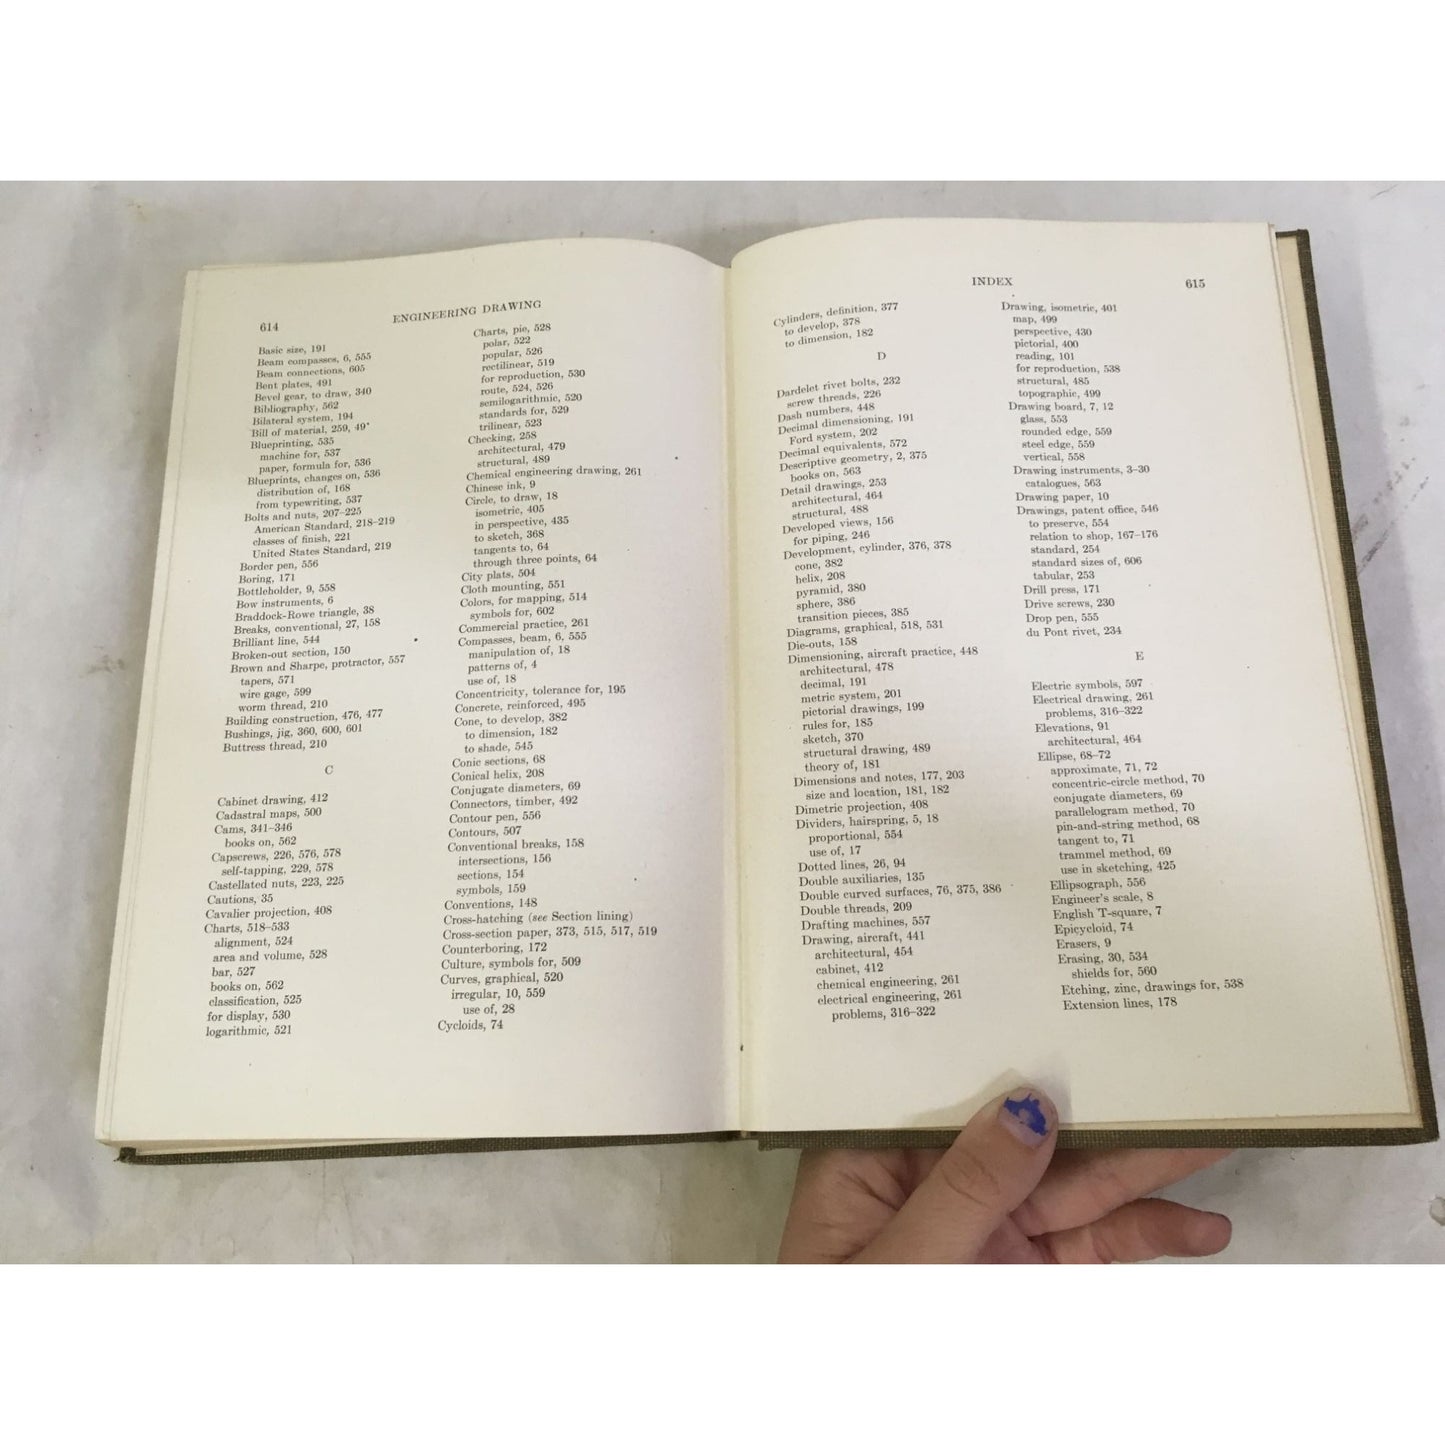 614
ENGINEERING DRAWING
Basic size, 191
Beam compasses, 6, 555
Beam connections, 605
Bent plates, 491
Bevel gear, to draw, 340
Bibliography, 562
Bilateral system, 194
Bill of material, 259, 49
Blueprinting, 535
machine for, 537
paper, formula for, 536
Blueprints, changes on, 536
distribution of, 168
from typewriting, 537
Bolts and nuts, 207–225
American Standard, 218–219
classes of finish, 221
United States Standard, 219
Border pen, 556
Boring, 171
Bottleholder, 9, 558
Bow instruments, 6
Braddock-Rowe triangle, 38
Breaks, conventional, 27, 158
Brilliant line, 544
Broken-out section, 150
Brown and Sharpe, protractor, 557
tapers, 571
wire gage, 599
worm thread, 210
Building construction, 476, 477
Bushings, jig, 360, 600, 601
Buttress thread, 210
C
Cabinet drawing, 412
Cadastral maps, 500
Cams, 341–346
books on, 562
Capscrews, 226, 576, 578
self-tapping, 229, 578
Castellated nuts, 223, 225
Cautions, 35
Cavalier projection, 408
Charts, 518–533
alignment, 524
area and volume, 528
bar, 527
books on, 562
classification, 525
for display, 530
logarithmic, 521
Charts, pie, 528
polar, 522
popular, 526
rectilinear, 519
for reproduction, 530
route, 524, 526
semilogarithmic, 520
standards for, 529
trilinear, 523
Checking, 258
architectural, 479
structural, 489
Chemical engineering drawing, 261
Chinese ink, 9
Circle, to draw, 18
isometric, 405
in perspective, 435
to sketch, 368
tangents to, 64
through three points, 64
City plats, 504
Cloth mounting, 551
Colors, for mapping, 514
symbols for, 602
Commercial practice, 261
Compasses, beam, 6, 555
manipulation of, 18
patterns of, 4
use of, 18
Concentricity, tolerance for, 195
Concrete, reinforced, 495
Cone, to develop, 382
to dimension, 182
to shade, 545
Conic sections, 68
Conical helix, 208
Conjugate diameters, 69
Connectors, timber, 492
Contour pen, 556
Contours, 507
Conventional breaks, 158
intersections, 156
sections, 154
symbols, 159
Conventions, 148
Cross-hatching (see Section lining)
Cross-section paper, 373, 515, 517, 519
Counterboring, 172
Culture, symbols for, 509
Curves, graphical, 520
irregular, 10, 559
use of, 28
Cycloids, 74
INDEX
615
Cylinders, definition, 377
to develop, 378
to dimension, 182
D
Dardelet rivet bolts, 232
screw threads, 226
Dash numbers, 448
Decimal dimensioning, 191
Ford system, 202
Decimal equivalents, 572
Descriptive geometry, 2, 375
books on, 563
Detail drawings, 253
architectural, 464
structural, 488
Developed views, 156
for piping, 246
Development, cylinder, 376, 378
cone, 382
helix, 208
pyramid, 380
sphere, 386
transition pieces, 385
Diagrams, graphical, 518, 531
Die-outs, 158
Dimensioning, aircraft practice, 448
architectural, 478
decimal, 191
metric system, 201
pictorial drawings, 199
rules for, 185
sketch, 370
structural drawing, 489
theory of, 181
Dimensions and notes, 177, 203
size and location, 181, 182
Dimetric projection, 408
Dividers, hairspring, 5, 18
proportional, 554
use of, 17
Dotted lines, 26, 94
Double auxiliaries, 135
Double curved surfaces, 76, 375, 386
Double threads, 209
Drafting machines, 557
Drawing, aircraft, 441
architectural, 454
cabinet, 412
chemical engineering, 261
electrical engineering, 261
problems, 316–322
Drawing, isometric, 401
map, 499
perspective, 430
pictorial, 400
reading, 101
for reproduction, 538
structural, 485
topographic, 499
Drawing board, 7, 12
glass, 553
rounded edge, 559
steel edge, 559
vertical, 558
Drawing instruments, 3–30
catalogues, 563
Drawing paper, 10
Drawings, patent office, 546
to preserve, 554
relation to shop, 167–176
standard, 254
standard sizes of, 606
tabular, 253
Drill press, 171
Drive screws, 230
Drop pen, 555
du Pont rivet, 234
E
Electric symbols, 597
Electrical drawing, 261
problems, 316–322
Elevations, 91
architectural, 464
Ellipse, 68–72
approximate, 71, 72
concentric-circle method, 70
conjugate diameters, 69
parallelogram method, 70
pin-and-string method, 68
tangent to, 71
trammel method, 69
use in sketching, 425
Ellipsograph, 556
Engineer's scale, 8
English T-square, 7
Epicycloid, 74
Erasers, 9
Erasing, 30, 534
shields for, 560
Etching, zinc, drawings for, 538
Extension lines, 178